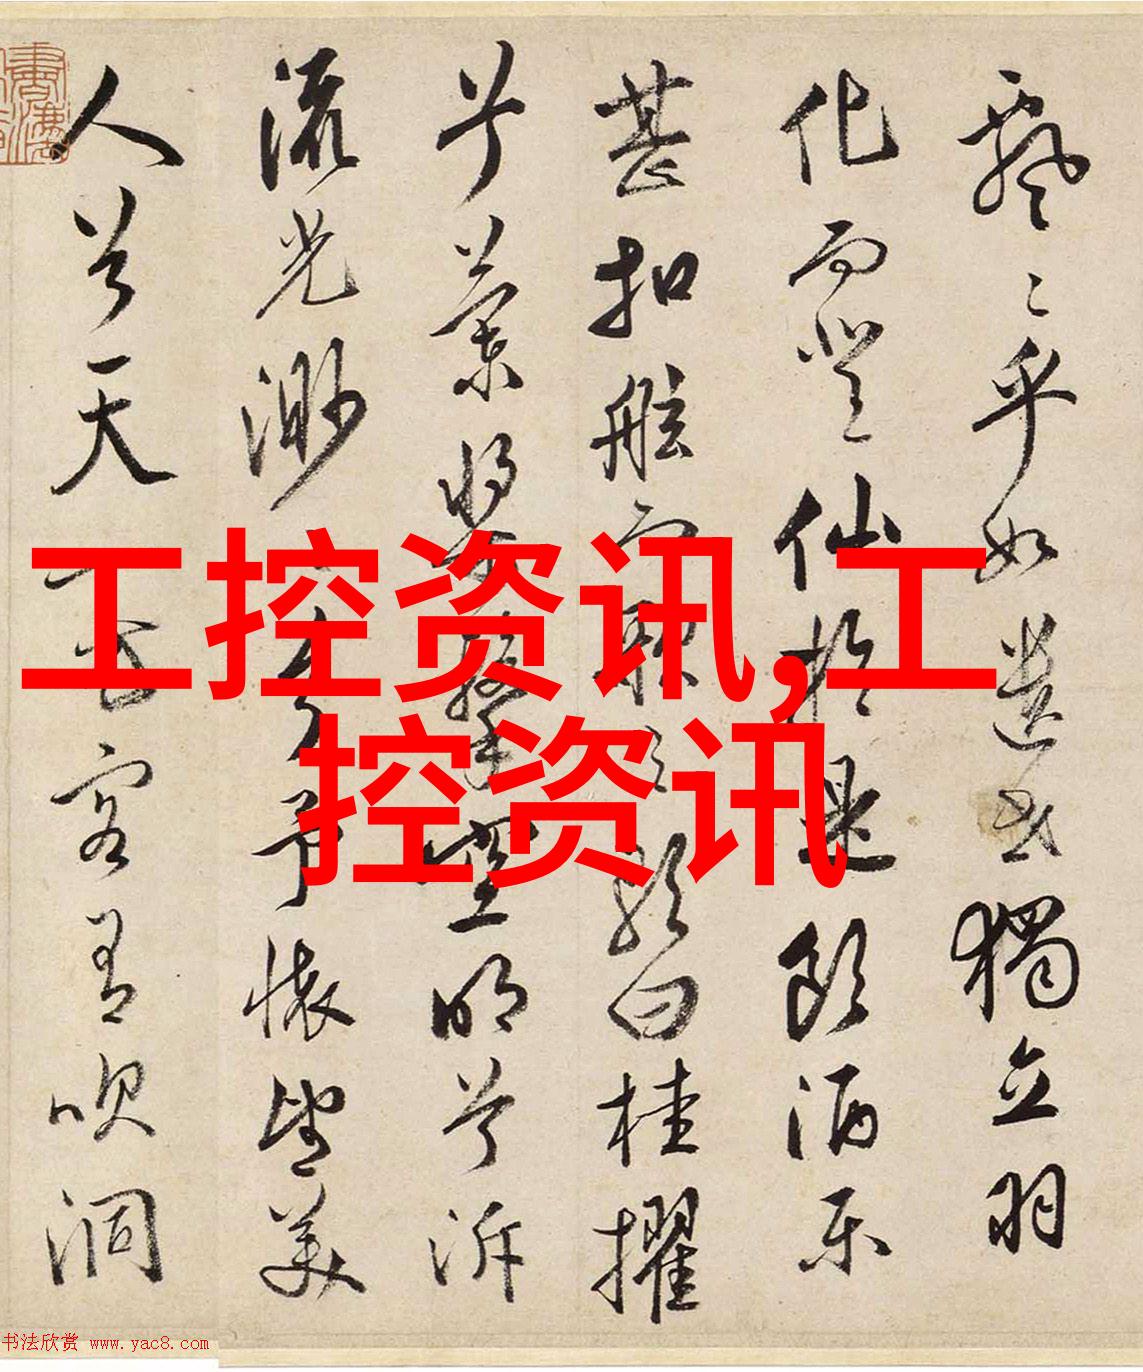 工控资讯,工
控资讯
飄〻乎如遺世獨立羽
化而登仙於是飲酒樂
甚扣舷而歌之歌曰桂擢
兮蘭槳擊空明兮泝
流光渺〻兮予懷望美
人兮天一方客有吹洞
书法欣赏 www.yac8.com